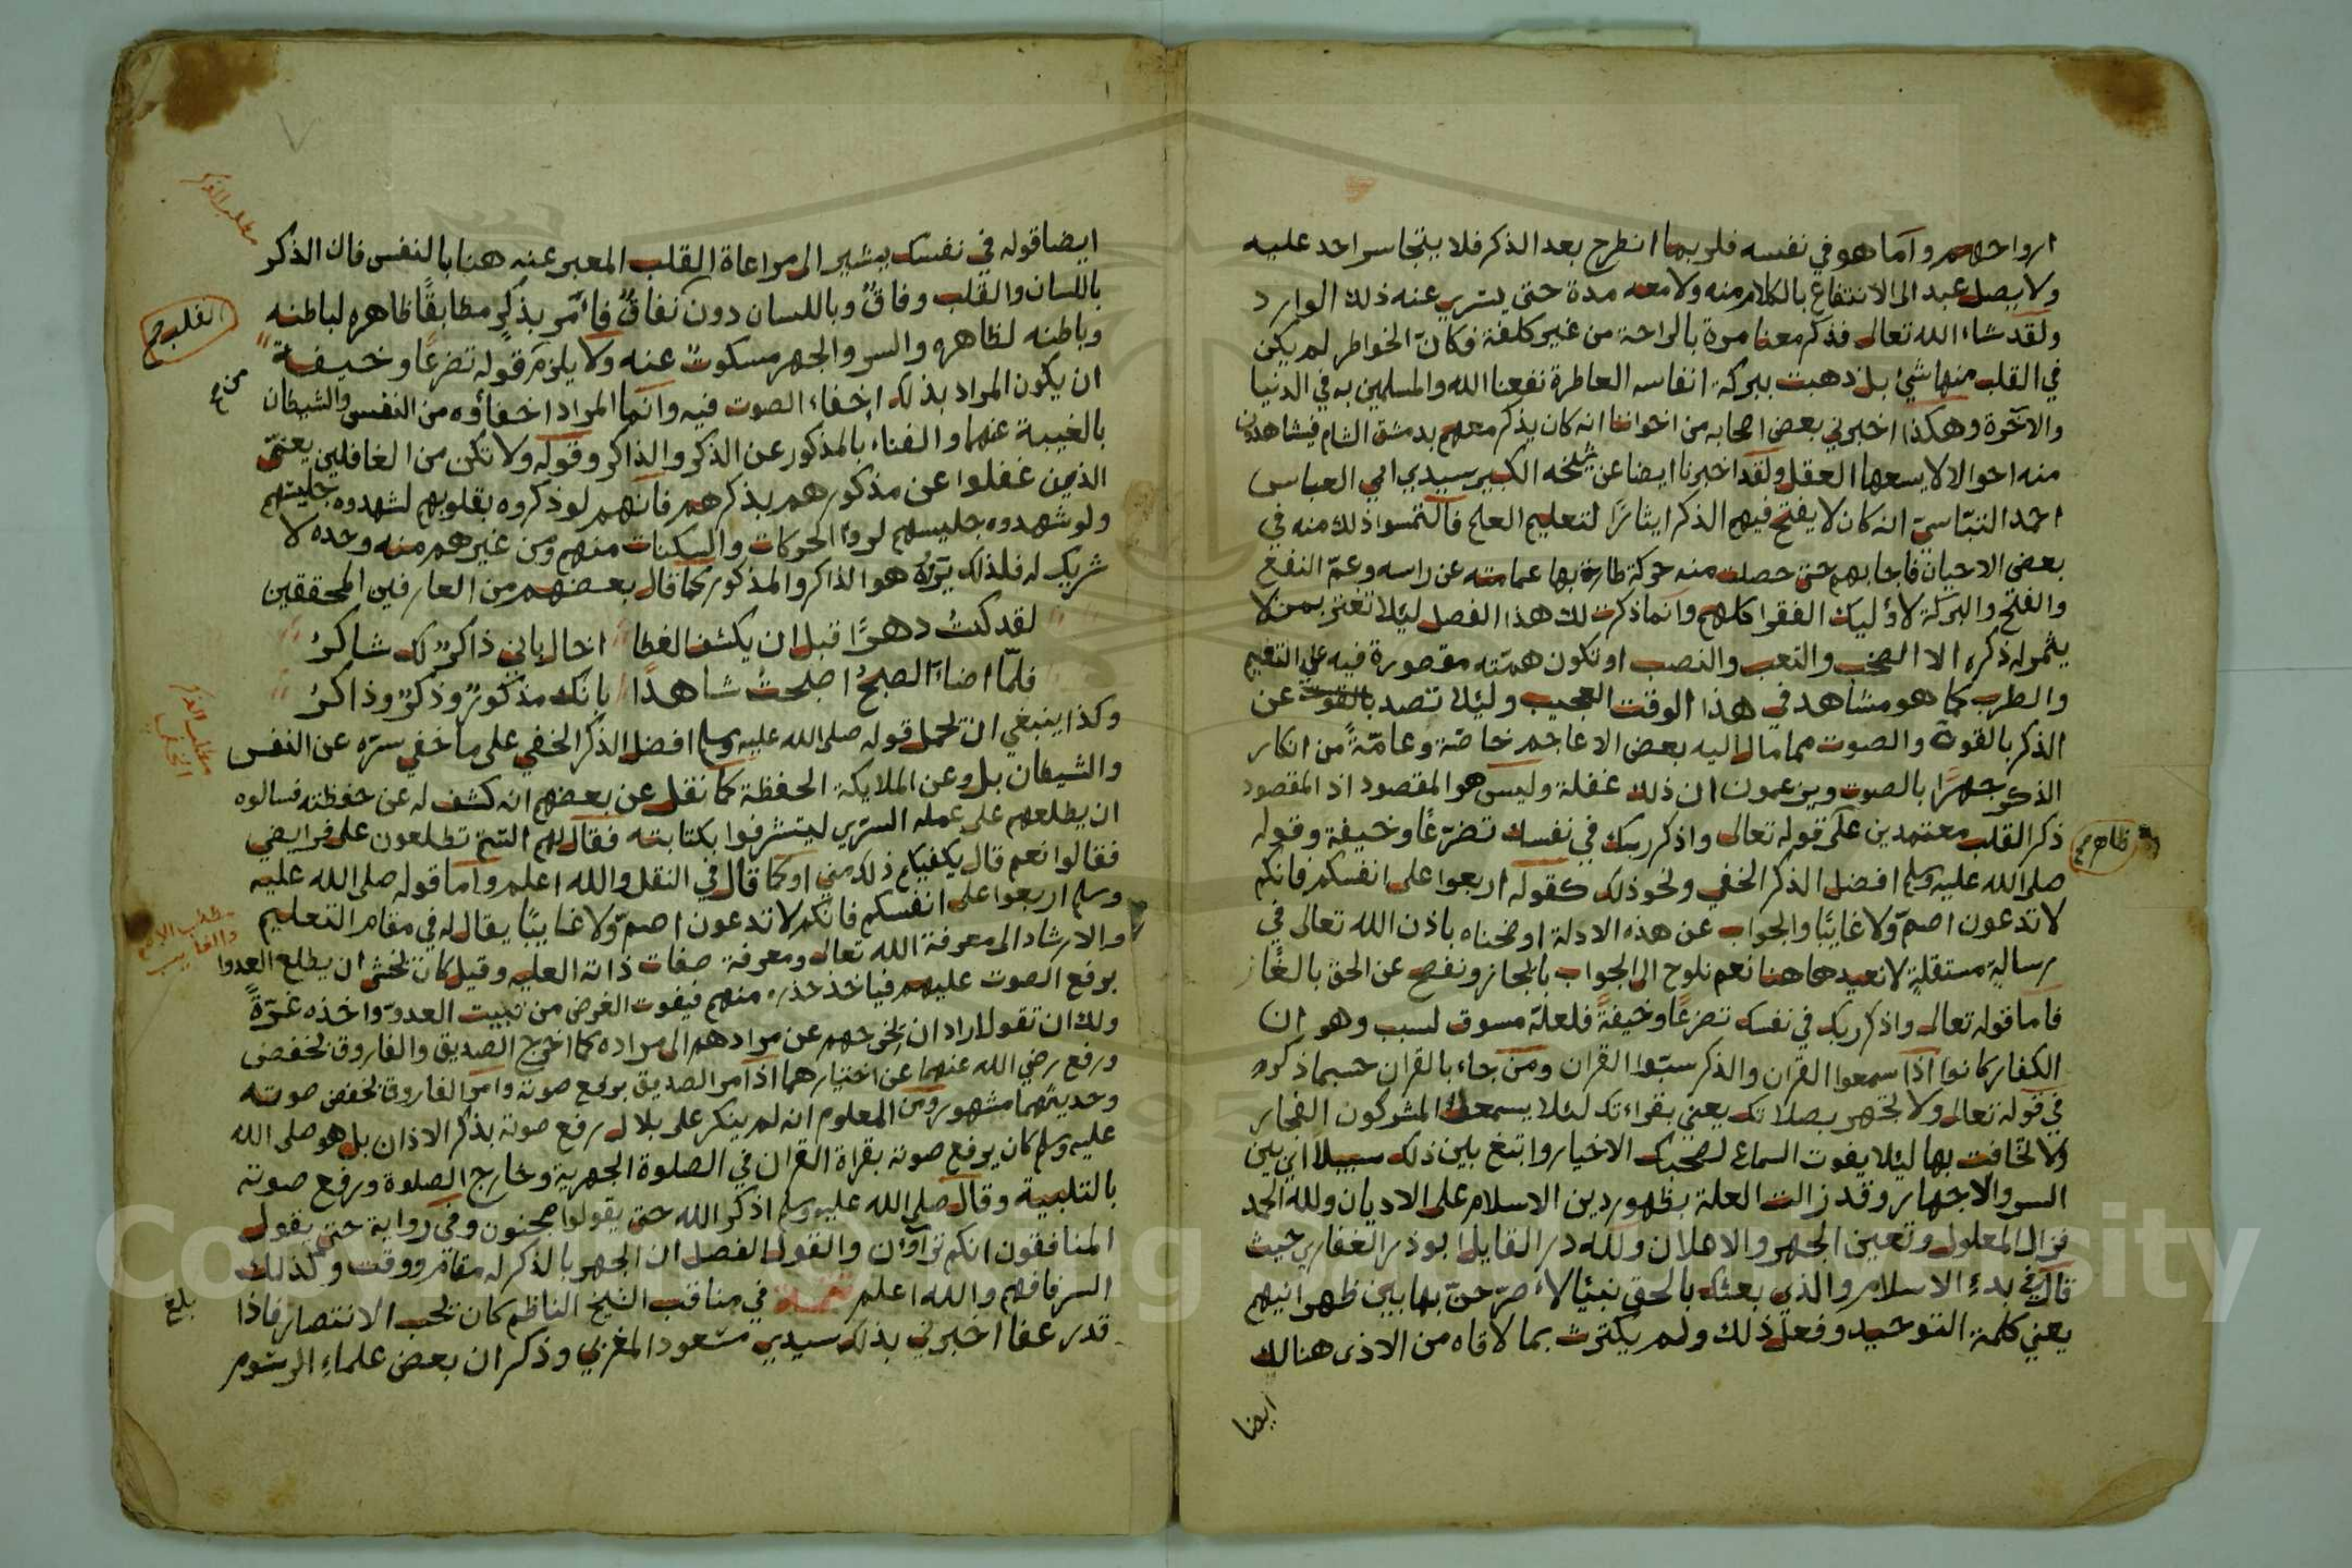 ارواحهم واما هو في نفسه فلربما انطرح بعد الذكر فلا يتجاسر احد عليه
ولا يصل عبد الى الانتفاع بالكلام منه ولا معه مدة حتى يسري عنه ذلك الوارد
ولقد شاء الله تعالى فذكر معنا مرة بالراحة من غير كلفة فكان الخواطر لم يكن
في القلب منها شئ بل ذهبت ببركة انفاسه العاطرة نفعنا الله والمسلمين به في الدنيا
والاخرة وهكذا اخبرني بعض اصحابه من اخواننا انه كان يذكر معهم بدمشق الشام فيشاهدون
منه احوالا لا يسعها العقل ولقد اخبرنا ايضا عن شيخه الكبير سيدي ابي العباس
احمد انه كان لا يفتح فيهم الذكر ايثارًا لتعليم العلم فالتمسوا ذلك منه في
بعض الاحيان فاجابهم حتى حصلت منه حركة طارة بها عمامته عن راسه وعمّ النفع
والفتح والبركة لاوليك الفقرا كلهم وانما ذكرت لك هذا الفصل ليلا تغتر بمن لا
يثمر له ذكره الا الصخب والتعب والنصب او تكون همته مقصورة فيه على النغم
والطرب كما هو مشاهد في هذا الوقت العجيب وليلا تصد بالفوت عن
الذكر بالقوة والصوت مما مال اليه بعض الاعاجم خاصّة وعامّةً من انكار
الذكر جهرًا بالصوت ويزعمون ان ذلك غفلة وليس هو المقصود اذ المقصود
ذكر القلب معتمدين على قوله تعالى واذكر ربك في نفسك تضرّعًا وخيفة وقوله
ظاهر
صلى الله عليه وسلم افضل الذكر الخفي ونحو ذلك كقوله اربعوا على انفسكم فانكم
لا تدعون اصمّ ولا غايبًا والجواب عن هذه الادلة اوضحناه باذن الله تعالى في
رسالةٍ مستقلةٍ لا نعيدها هنا نعم نلوح الى الجواب بالمجاز ونفصح عن الحق بالغاز
فاما قوله تعالى واذكر ربك في نفسك تضرعًا وخيفةً فلعلّه مسوق لسبب وهو ان
الكفار كانوا اذا سمعوا القران والذكر سبّوا القران ومن جاء بالقران حسبما ذكره
في قوله تعالى ولا تجهر بصلاتك يعني بقراءتك لئلا يسمعك المشركون الفجار
ولا تخافت بها ليلا يفوت السماع لصحبك الاخيار وابتغ بين ذلك سبيلًا اي بين
السر والاجهار وقد زالت العلة بظهور دين الاسلام على الاديان ولله الحمد
فزال المعلول وتعين الجهر والاعلان ولله در القايل ابو ذر الغفاري حيث
قال في بدء الاسلام والذي بعثك بالحق نبيًا لاصرّحنّ بها بين ظهرانيهم
يعني كلمة التوحيد وفعل ذلك ولم يكترث بما لاقاه من الاذى هنالك
ايضا
ايضا قوله في نفسك يشير الى مراعاة القلب المعبر عنه هنا بالنفس فان الذكر
باللسان والقلب وفاقٌ وباللسان دون نفاقٌ فأمر بذكرٍ مطابقًا ظاهره لباطنه
القلب
وباطنه لظاهره والسر والجهر مسكوت عنه ولا يلزم قوله تضرعًا وخيفة
ان يكون المراد بذلك اخفاء الصوت فيه وانما المراد اخفاؤه من النفس والشيطان
بالغيبة عنهما والفناء بالمذكور عن الذكر والذاكر وقوله ولا تكن من الغافلين يعني
الذين غفلوا عن مذكورهم بذكرهم فانهم لو ذكروه بقلوبهم لشهدوه جليسهم
ولو شهدوه جليسهم لروا الحركات والسكنات منهم ومن غيرهم منه وحده لا
شريك له فلذلك هو الذاكر والمذكور كما قال بعضهم من العارفين المحققين
لقد كنتُ دهرًا قبل ان يكشف الغطا اخال باني ذاكرٌ لك شاكرُ
فلمّا اضاءَ الصبحُ اصبحتُ شاهدًا بانك مذكورٌ وذكرٌ وذاكرُ
مطلب الذكر الخفي
وكذا ينبغي ان تحمل قوله صلى الله عليه وسلم افضل الذكر الخفي على ما خفي سرّه عن النفس
والشيطان بل وعن الملايكة الحفظة كما نقل عن بعضهم انه كشف له عن حفظته فسالوه
ان يطلعهم على عمله السرّي ليتشرفوا بكتابته فقال لهم الشيخ تطلعون على فرايضي
فقالوا نعم قال يكفيكم ذلك مني او كما قال في النقل والله اعلم واما قوله صلى الله عليه
وسلم اربعوا على انفسكم فانكم لا تدعون اصمّ ولا غايبًا يقال له في مقام التعليم
والارشاد الى معرفة الله تعالى ومعرفة صفات ذاته العليه وقيل كان يخشى ان يطلع العدوا
برفع الصوت عليهم فياخذ حذره منهم فيفوت الغرض من تبييت العدوّ واخذه غرّةً
ولك ان تقول اراد ان يخرجهم عن مرادهم الى مراده كما اخرج الصديق والفاروق بخفض
ورفع رضي الله عنهما عن اختيارهما اذ امر الصديق برفع صوته وامر الفاروق بخفض صوته
وحديثهما مشهور ومن المعلوم انه لم ينكر على بلال رفع صوته بذكر الاذان بل هو صلى الله
عليه وسلم كان يرفع صوته بقراة القران في الصلوة الجهرية وخارج الصلوة ورفع صوته
بالتلبية وقال صلى الله عليه وسلم اذكر الله حتى يقولوا مجنون وفي رواية حتى يقول
المنافقون انكم تراؤن والقول الفصل ان الجهر بالذكر له مقام ووقت وكذلك
السر فافهم والله اعلم في مناقب الشيخ الناظم كان يحب الانتصار فاذا
بلغ
قدر عفا اخبرني بذلك سيدي مسعود المغربي وذكر ان بعض علماء الرسوم